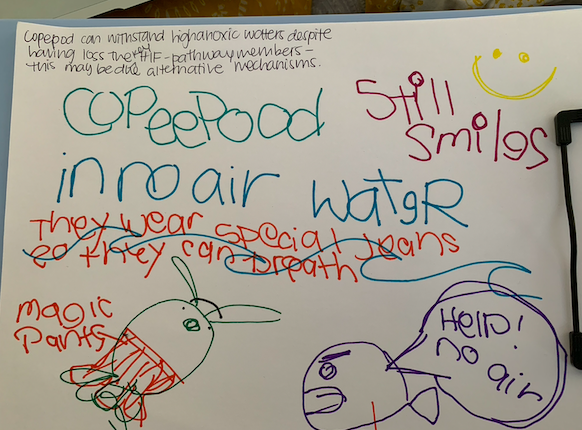 Copepod can withstand high anoxic watters despite
having loss the key HIF-pathway members-
this may be due alternative mechanisms.
COPeePOod
Still
smiles
in no air water
They wear special jeans
so they can breath
magic
pants
Help!
no air